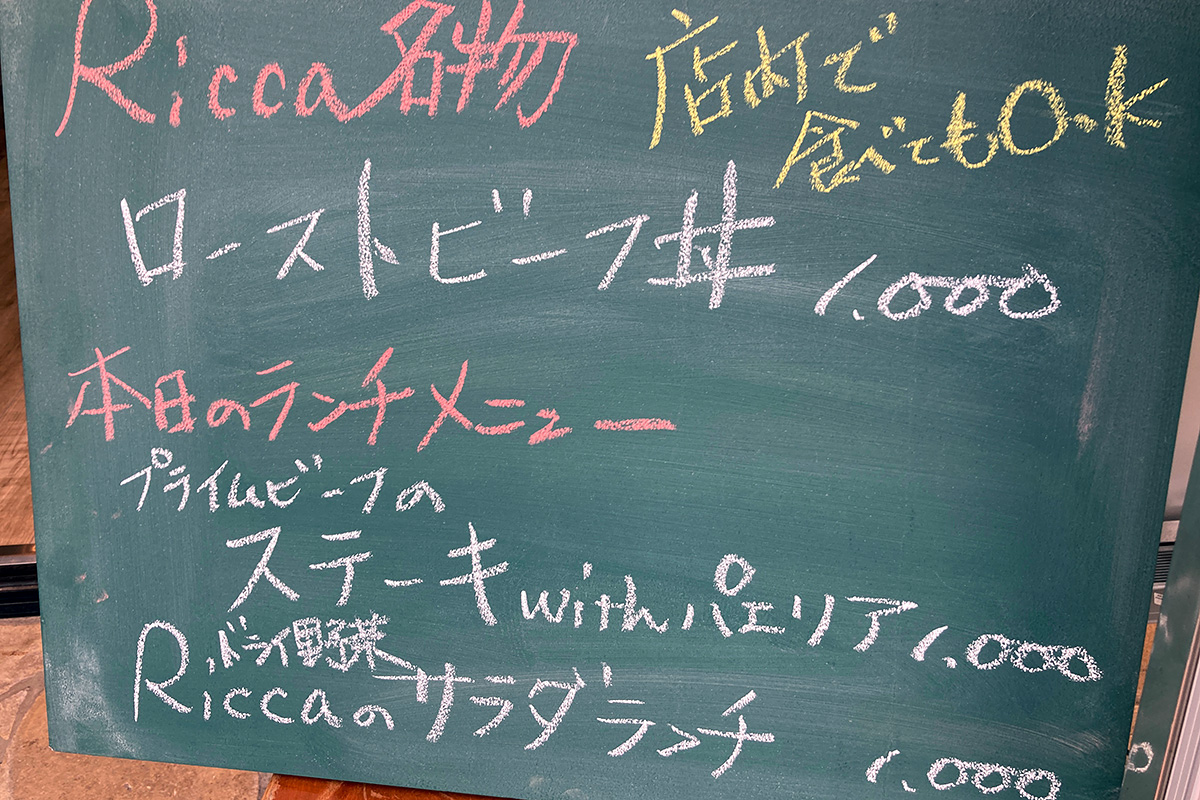 Ricca名物
店内で
食べてもO.k
ローストビーフ丼 1.000
本日のランチメニュー
プライムビーフの
ステーキwithパエリア 1.000
ドライ野菜
Riccaのサラダランチ 1.000